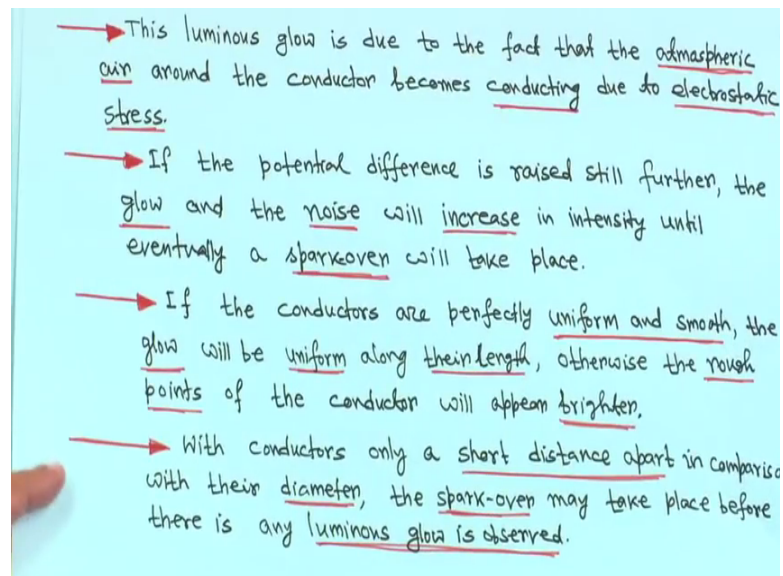 This luminous glow is due to the fact that the admaspheric
air around the conductor becomes conducting due to electrostatic
stress.
If the potential difference is raised still further, the
glow and the noise will increase in intensity until
eventually a sparkover will take place.
If the conductors are perfectly uniform and smooth, the
glow will be uniform along their length, otherwise the rough
points of the conductor will appear brighter.
With conductors only a short distance apart in comparis
with their diameter, the spark-over may take place before
there is any luminous glow is observed.